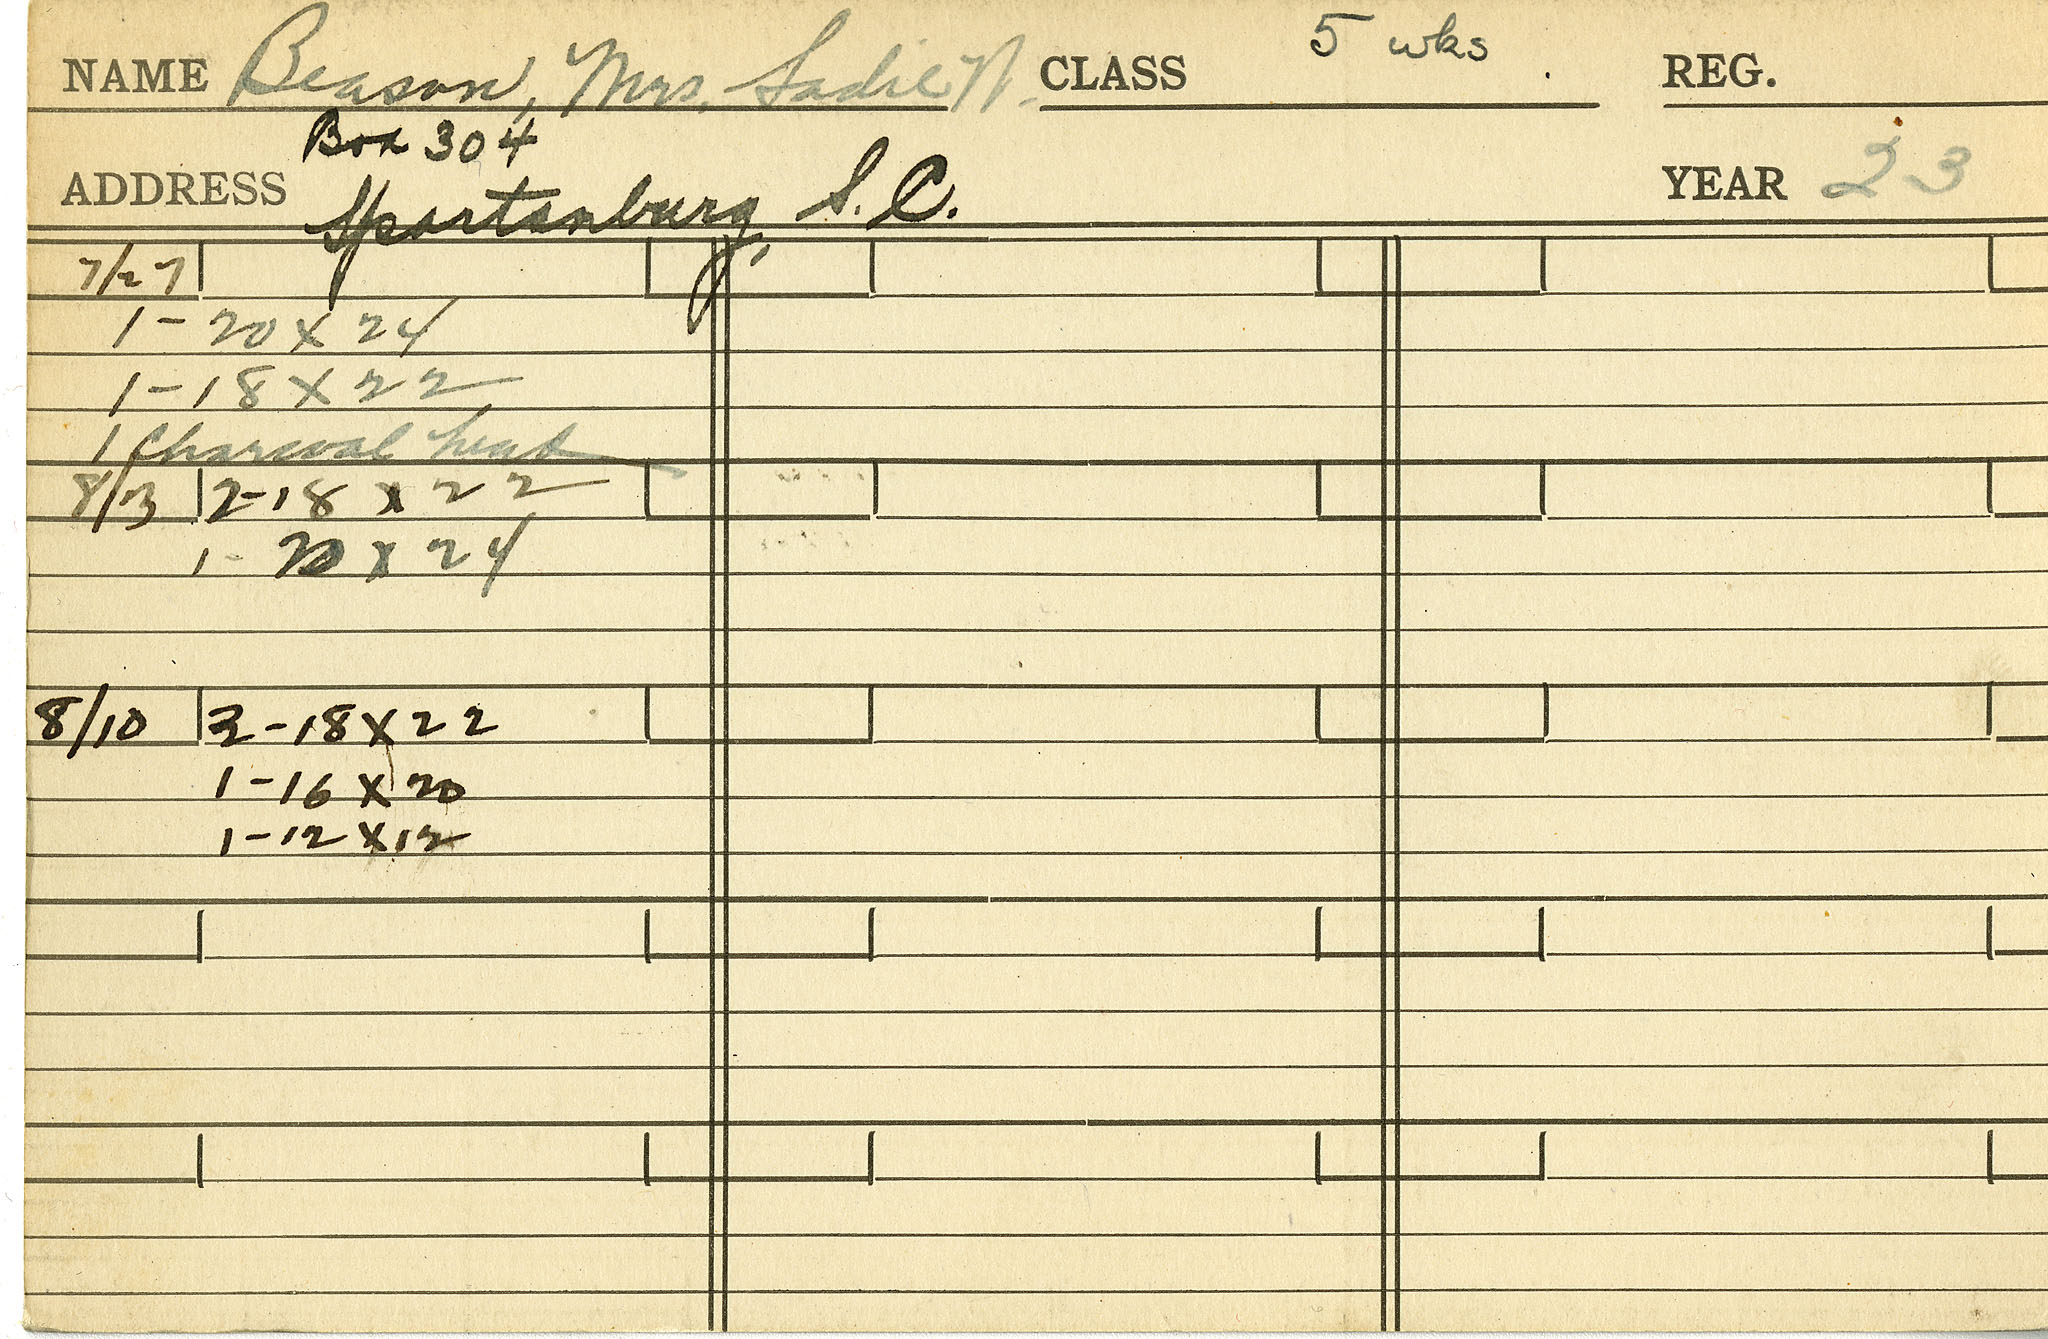 NAME Beason, Mrs. Sadie N. CLASS 5 wks REG.
Box 304
ADDRESS Spartanburg, S.C. YEAR 23
7/27
1-20 x 24
1-18 x 22
1 Charcoal head
8/3 2-18 x 22
1-20 x 24
8/10 3-18 x 22
1-16 x 20
1-12 x 12